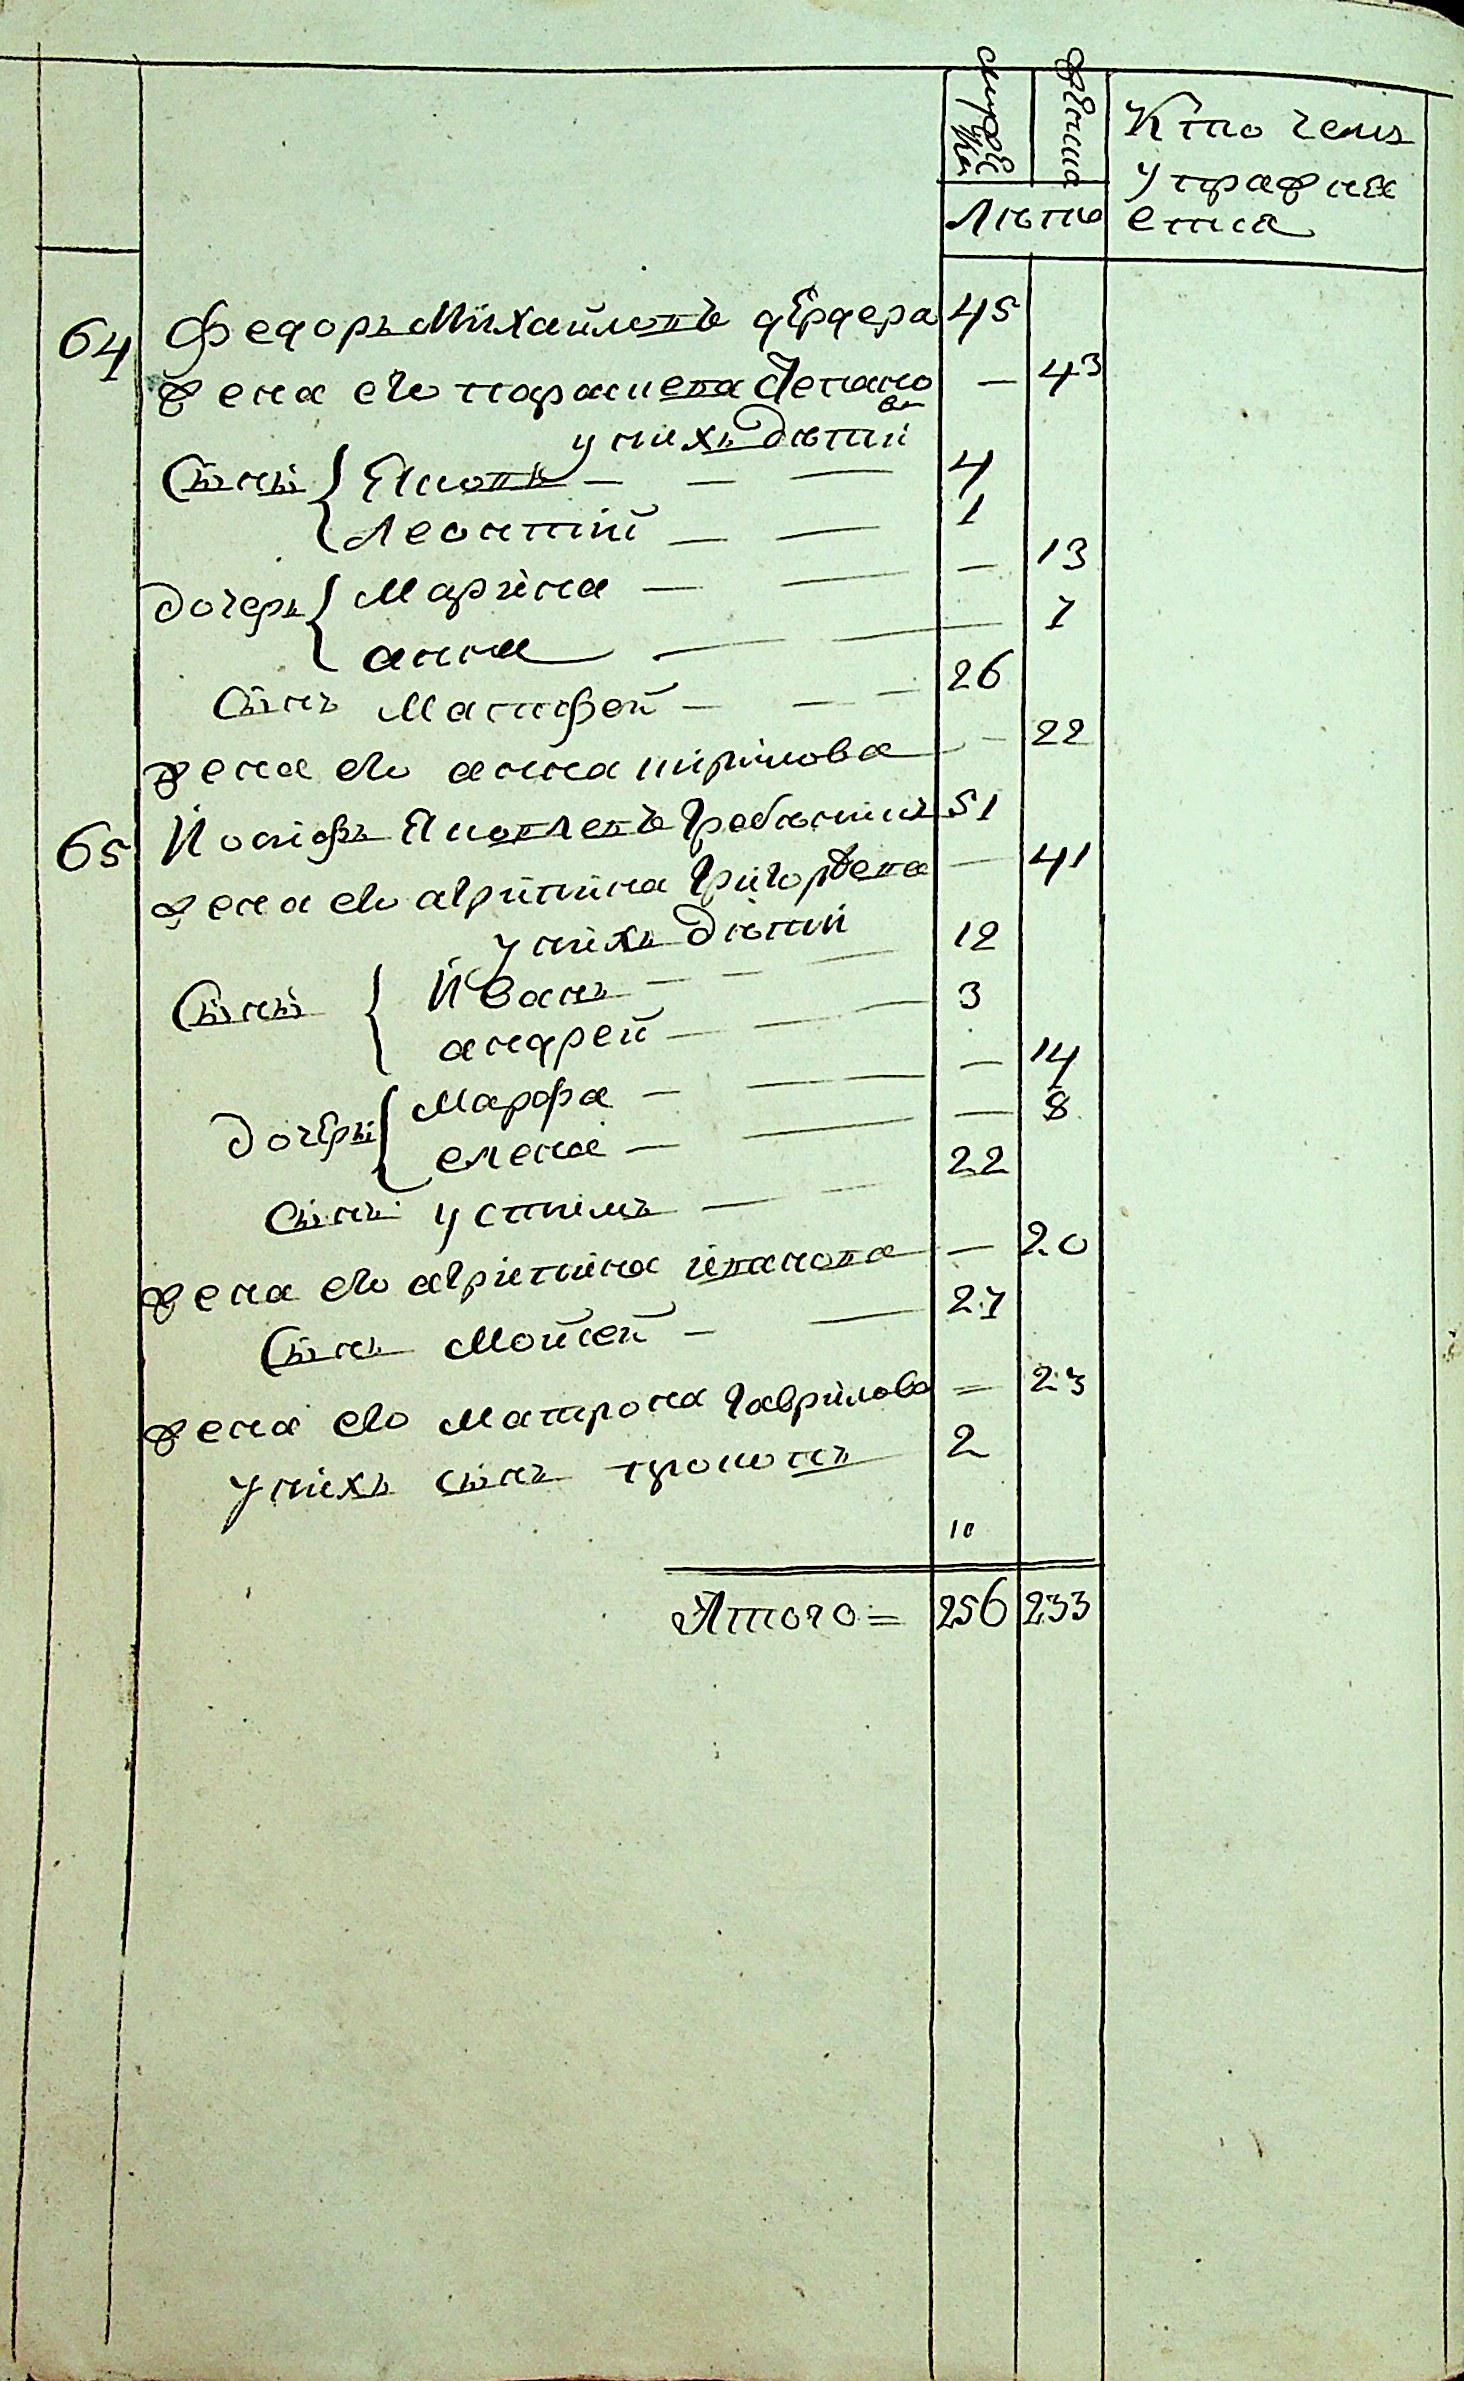 мужеска
женска
Кто чемъ
упражня
ется
Лѣта
64 Федоръ Михайловъ дердера 45
жена его парасцева Степано 43
ва
у нихъ дѣтий
Сыны Яковъ 4
Леонтий 1
дочеръ Марина 13
анна 7
Сынъ Матфей 26
жена его анна кирилова 22
65 Иосифъ Яковлевъ Гребѣникъ 51
жена его агрипина Григорьева 41
у нихъ дѣтий
Сыны Иванъ 12
андрей 3
дочеры Марфа 14
елена 8
Сынъ устимъ 22
жена его агрипина иванова 20
Сынъ Мойсей 27
жена его матрона Гаврилова 23
у нихъ сынъ прокопъ 2
10
Итого = 256 233